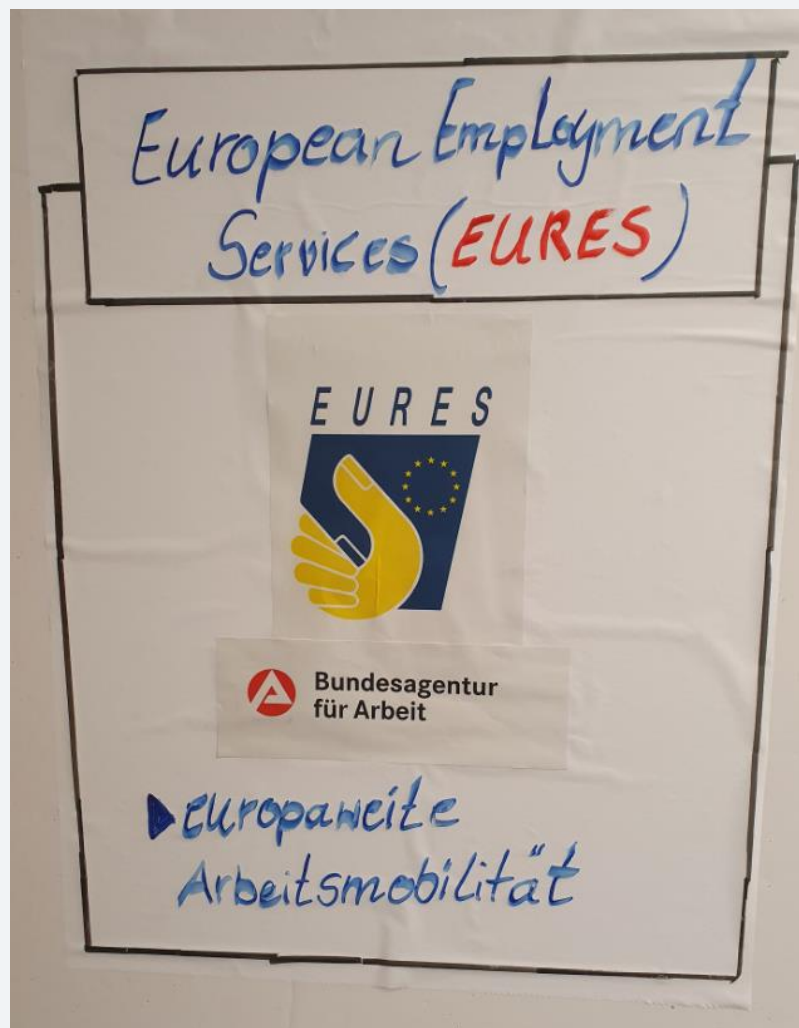 European Employment
Services (EURES)
EURES
Bundesagentur
für Arbeit
europaweite
Arbeitsmobilität